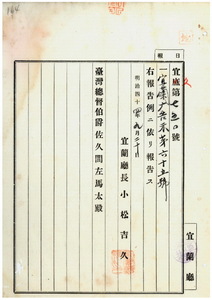 日 報
宜庶第七五〇號
一宜蘭廳告示第六十五號
右報告例ニ依リ報告ス
明治四十四年九月二十日
宜蘭廳長 小松吉久
臺灣總督伯爵佐久間左馬太殿
宜蘭廳